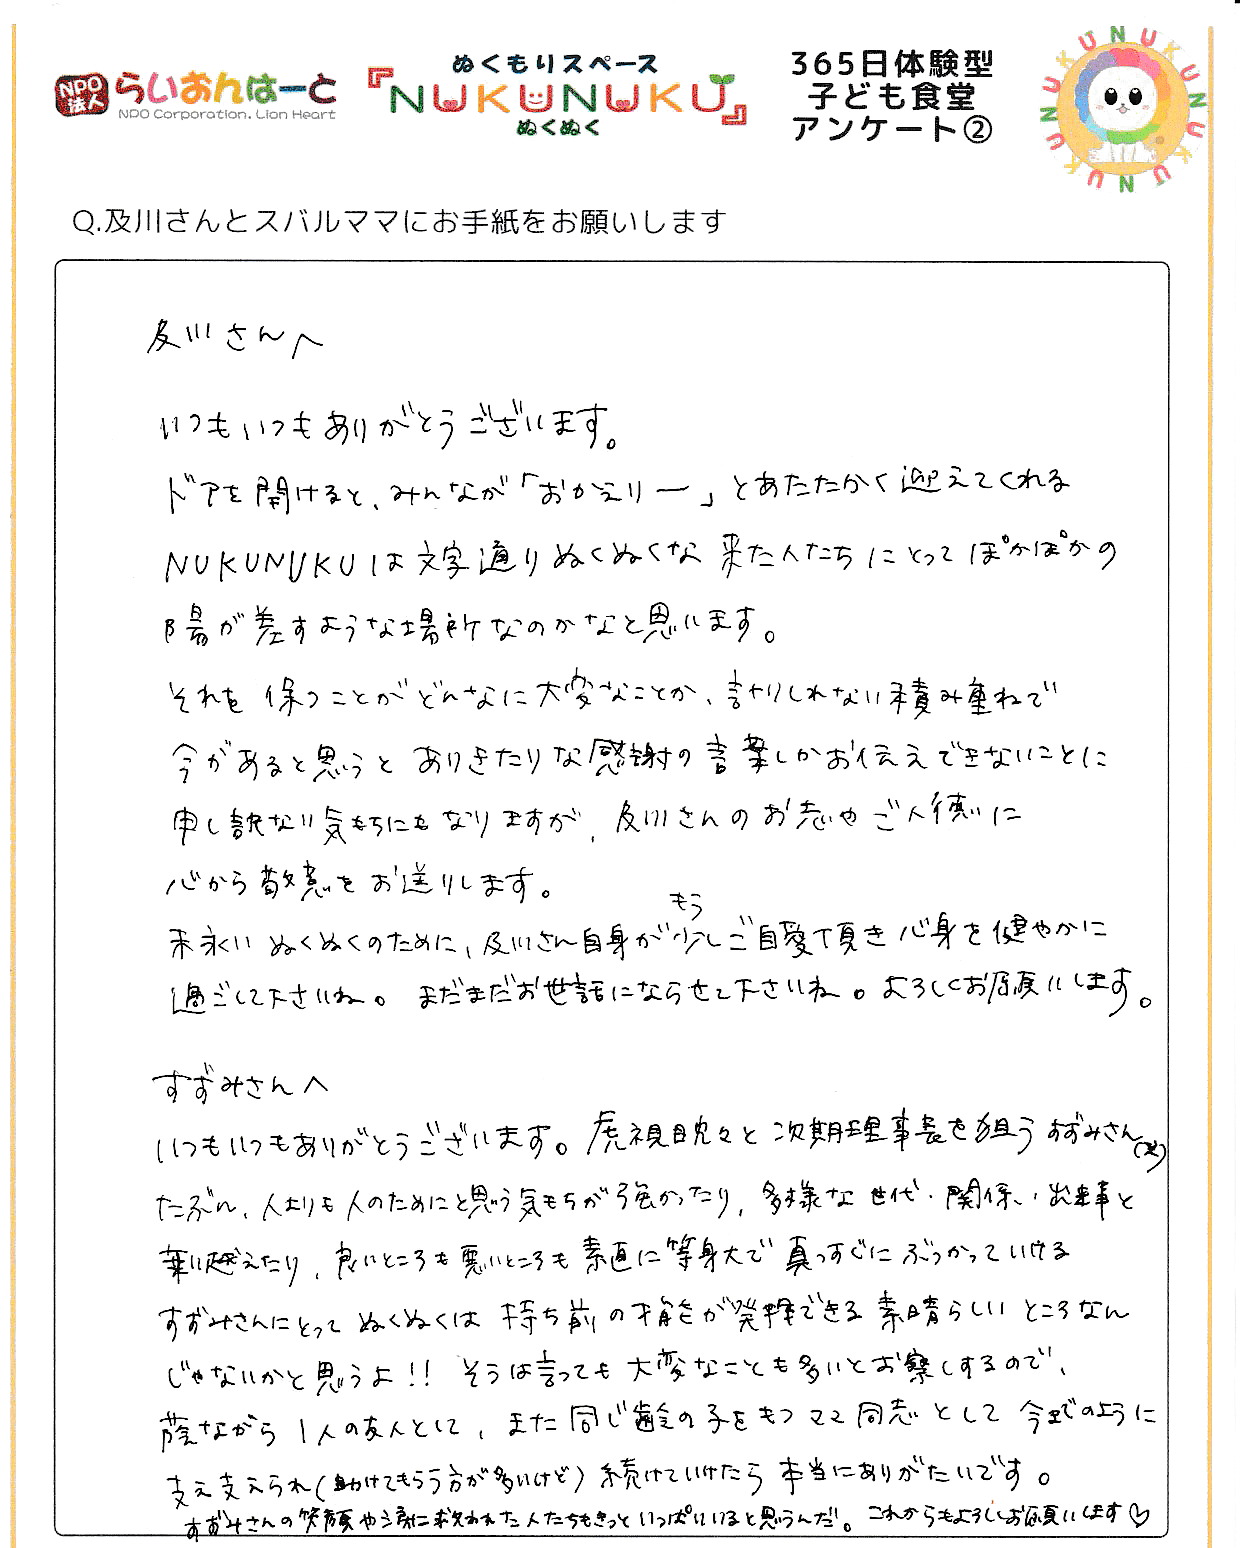 NPO法人 らいおんはーと
NPO Corporation. Lion Heart
ぬくもりスペース
『NUKUNUKU』
ぬくぬく
365日体験型
子ども食堂
アンケート②
NUKUNUKUNUKUNUKU
Q.及川さんとスバルママにお手紙をお願いします
及川さんへ
いつもいつもありがとうございます。
ドアを開けると、みんなが「おかえりー」とあたたかく迎えてくれる
NUKUNUKUは文字通りぬくぬくな来た人たちにとってぽかぽかの
陽が差すような場所なのかなと思います。
それを保つことがどんなに大変なことか、計りしれない積み重ねで
今があると思うとありきたりな感謝の言葉しかお伝えできないことに
申し訳ない気もちにもなりますが、及川さんのお志やご人徳に
心から敬意をお送りします。
末永いぬくぬくのために、及川さん自身がもう少しご自愛頂き心身を健やかに
過ごして下さいね。まだまだお世話にならせて下さいね。よろしくお願いします。
すずみさんへ
いつもいつもありがとうございます。虎視眈々と次期理事長を狙うすずみさん(笑)
たぶん、人よりも人のためにと思う気もちが強かったり、多様な世代・関係・出来事と
乗り越えたり、良いところも悪いところも素直に等身大で真っすぐにぶつかっていける
すずみさんにとってぬくぬくは持ち前の才能が発揮できる素晴らしいところなん
じゃないかと思うよ!! そうは言っても大変なことも多いとお察しするので、
蔭ながら1人の友人として、また同じ齢の子をもつママ同志として今までのように
支え支えられ(助けてもらう方が多いけど)続けていけたら本当にありがたいです。
すずみさんの笑顔や涙に救われた人たちもきっといっぱいいると思うんだ。これからもよろしくお願いします♡